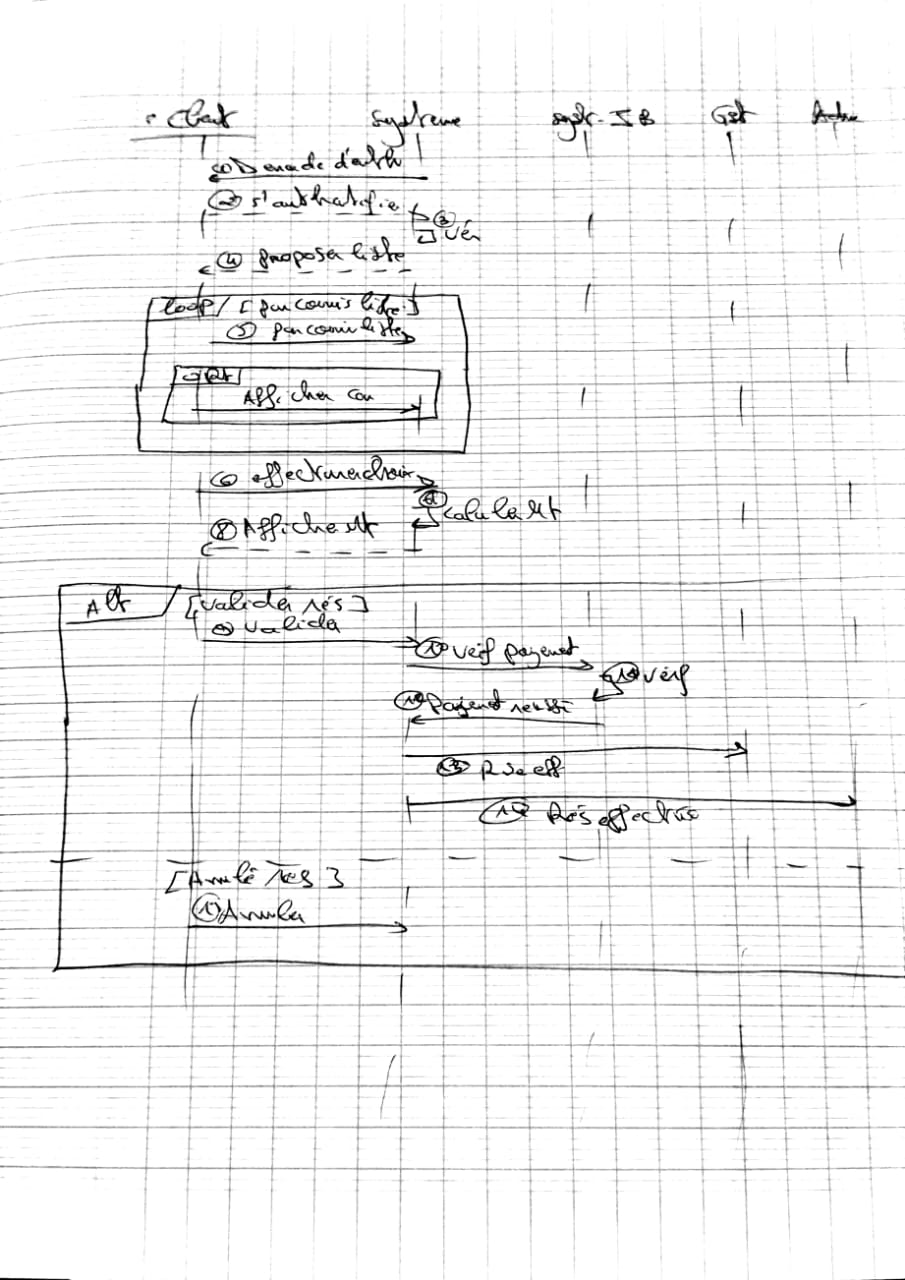 Client système syst. IB Gst
① Demande d'auth
② s'authatifie
③ Vér
④ proposer liste
loop [parcouris liste]
⑤ parcourir liste
opt
Afficher con
⑥ effectuer choix
calcule Mt
⑧ Affiche Mt
Alt [valider rés]
⑨ valida
⑩ vérif payement
⑪ vérif
⑫ Payemt réussi
⑬ Rés eff
⑭ Rés effective
[Annulé rés]
Annuler